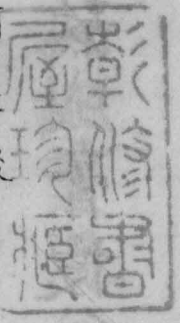 彰修書
屋珍藏